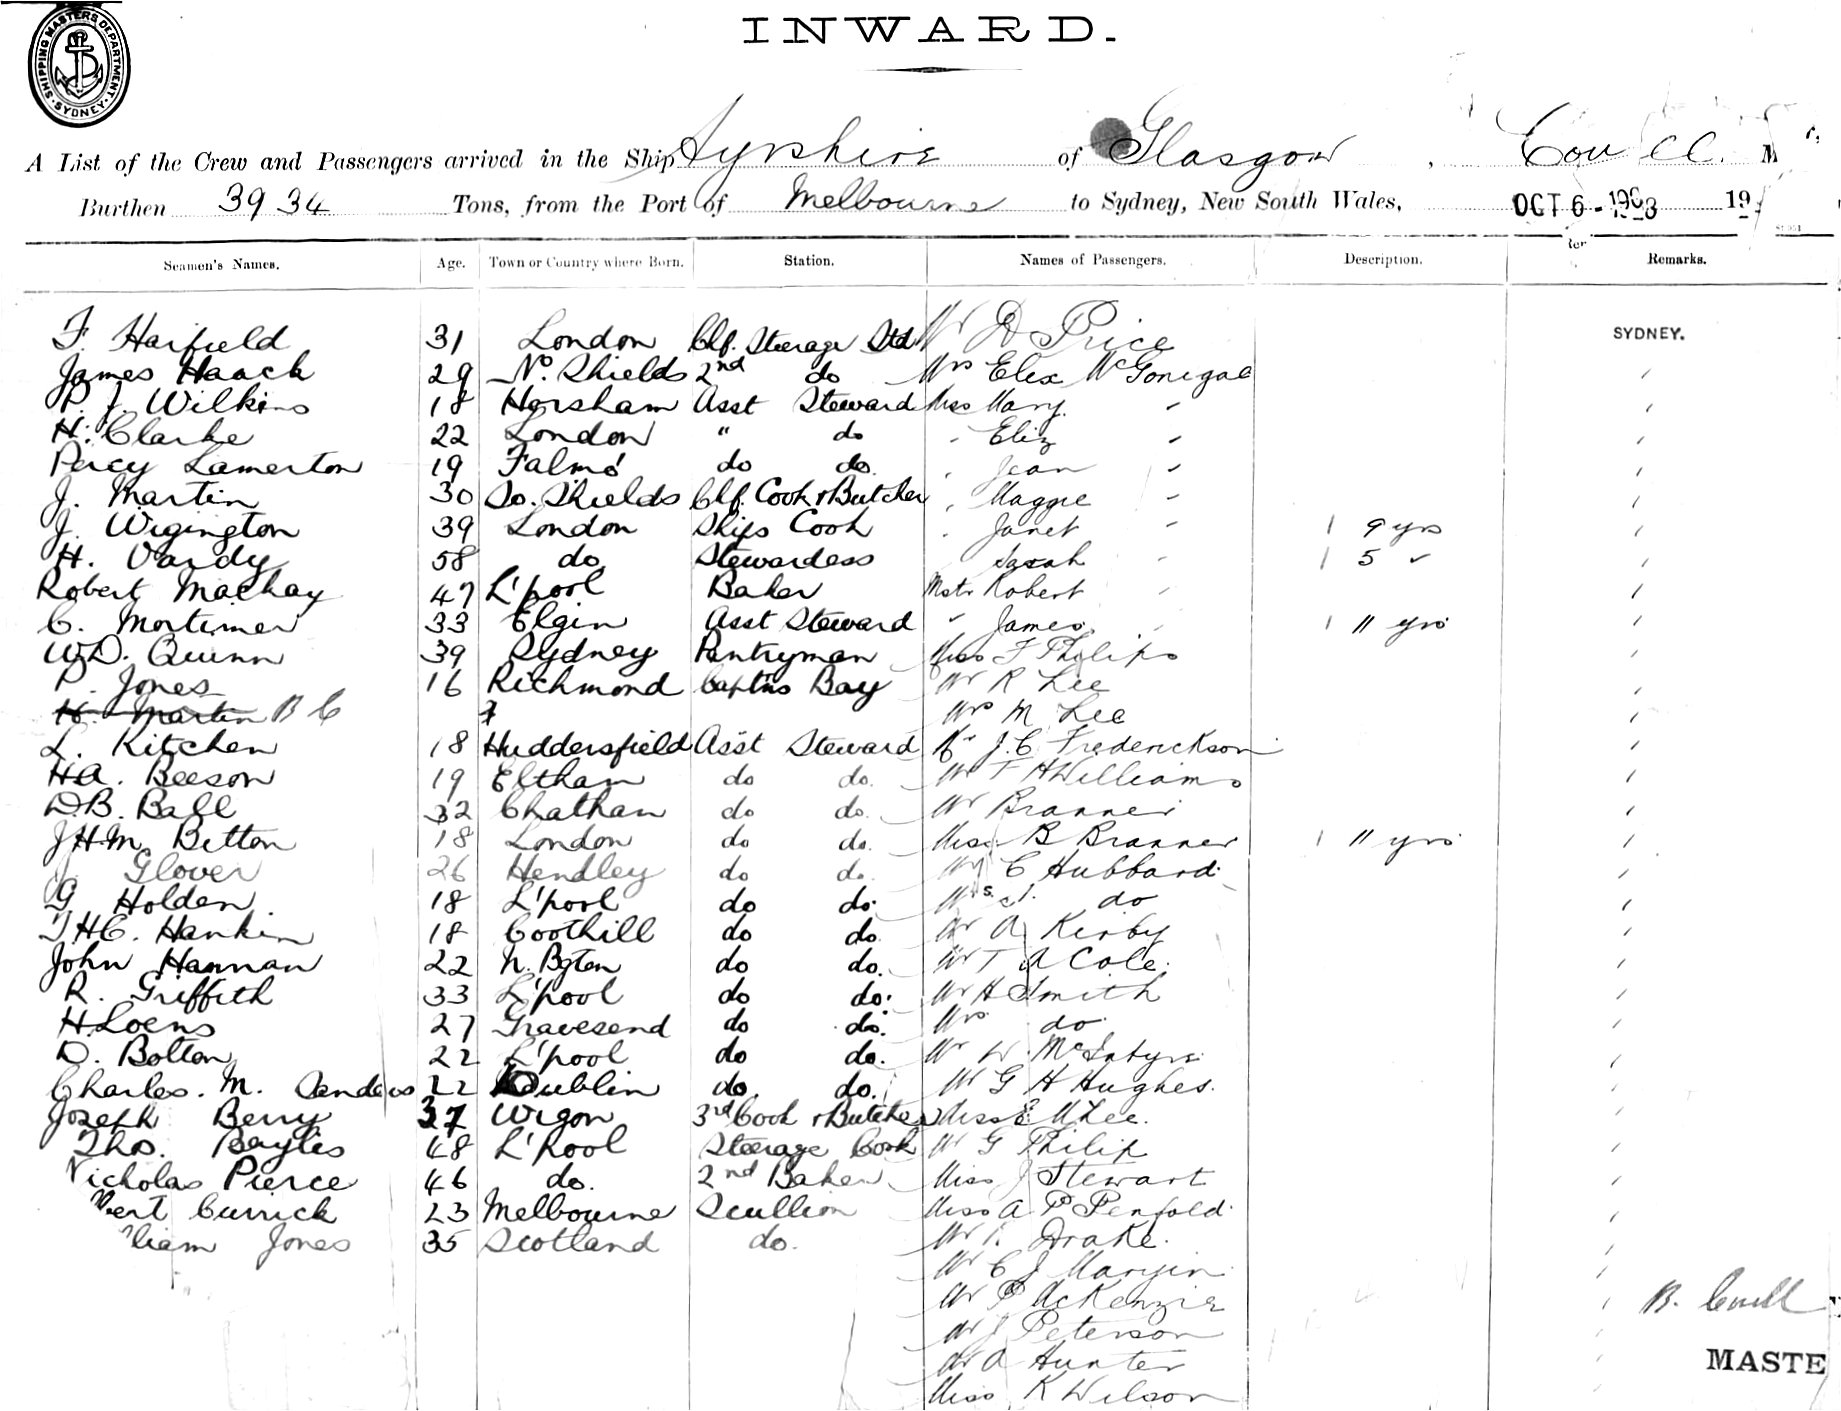 SHIPPING MASTERS DEPARTMENT. SYDNEY.
INWARD.
A List of the Crew and Passengers arrived in the Ship Ayrshire of Glasgow, M
Burthen 3934 Tons, from the Port of Melbourne to Sydney, New South Wales, OCT 6 - 1903 19
Seamen's Names. Age. Town or Country where Born. Station. Names of Passengers. Description. Remarks.
F. Harfield 31 London Chf. Steerage Std Mr D Price SYDNEY.
James Haack 29 No. Shields 2nd do Mrs Eliz McGonigal
P. J. Wilkins 18 Horsham Asst Steward Miss Mary "
H. Clarke 22 London " do " Eliz "
Percy Lamerton 19 Falmo' do do. " Jean "
J. Martin 30 So. Shields Chf. Cook & Butcher " Maggie "
J. Wigington 39 London Ships Cook " Janet " 1 9 yrs
H. Vardy 58 do Stewardess Sarah " 1 5 "
Robert Mackay 47 L'pool Baker Mstr Robert "
C. Mortimer 33 Elgin Asst Steward " James " 1 11 yrs
W.D. Quinn 39 Sydney Pantryman Miss F Philips
P. Jones 16 Richmond Captns Boy Mr R Lee
H. Martin B C Mrs M Lee
L. Kitchen 18 Huddersfield Asst Steward Mr J.C Frederickson
H.A. Beeson 19 Eltham do do. Mr F H Williams
D.B. Ball 32 Chatham do do. Mr Branner
J.H.M. Betton 18 London do do. Miss B Branner 1 11 yrs
J. Glover 26 Hendley do do. Mr C Hubbard
G Holden 18 L'pool do do. Mrs do
T.H.C. Hankin 18 Coothill do do. Mr A Kirby
John Hannan 22 N. Bgton do do. Mr T A Cole.
R. Griffith 33 L'pool do do. Mr H Smith
H. Loens 27 Gravesend do do. Mrs do
D. Bolton 22 L'pool do do. Mr W. McIntyre
Charles. M. Sanders 22 Dublin do do. Mr G H Hughes.
Joseph Berry 37 Wigon 3rd Cook & Butcher Miss E Lee.
Thos. Bayliss 48 L'pool Steerage Cook Mr G Philip
Nicholas Pierce 46 do. 2nd Baker Miss J Stewart
Currick 23 Melbourne Scullion Miss A P Penfold
Jones 35 Scotland do. Mr Drake.
Mr C J
Mr P McKenzie B.
Mr J Peterson
Mr A Hunter MASTE
Miss K Wilson